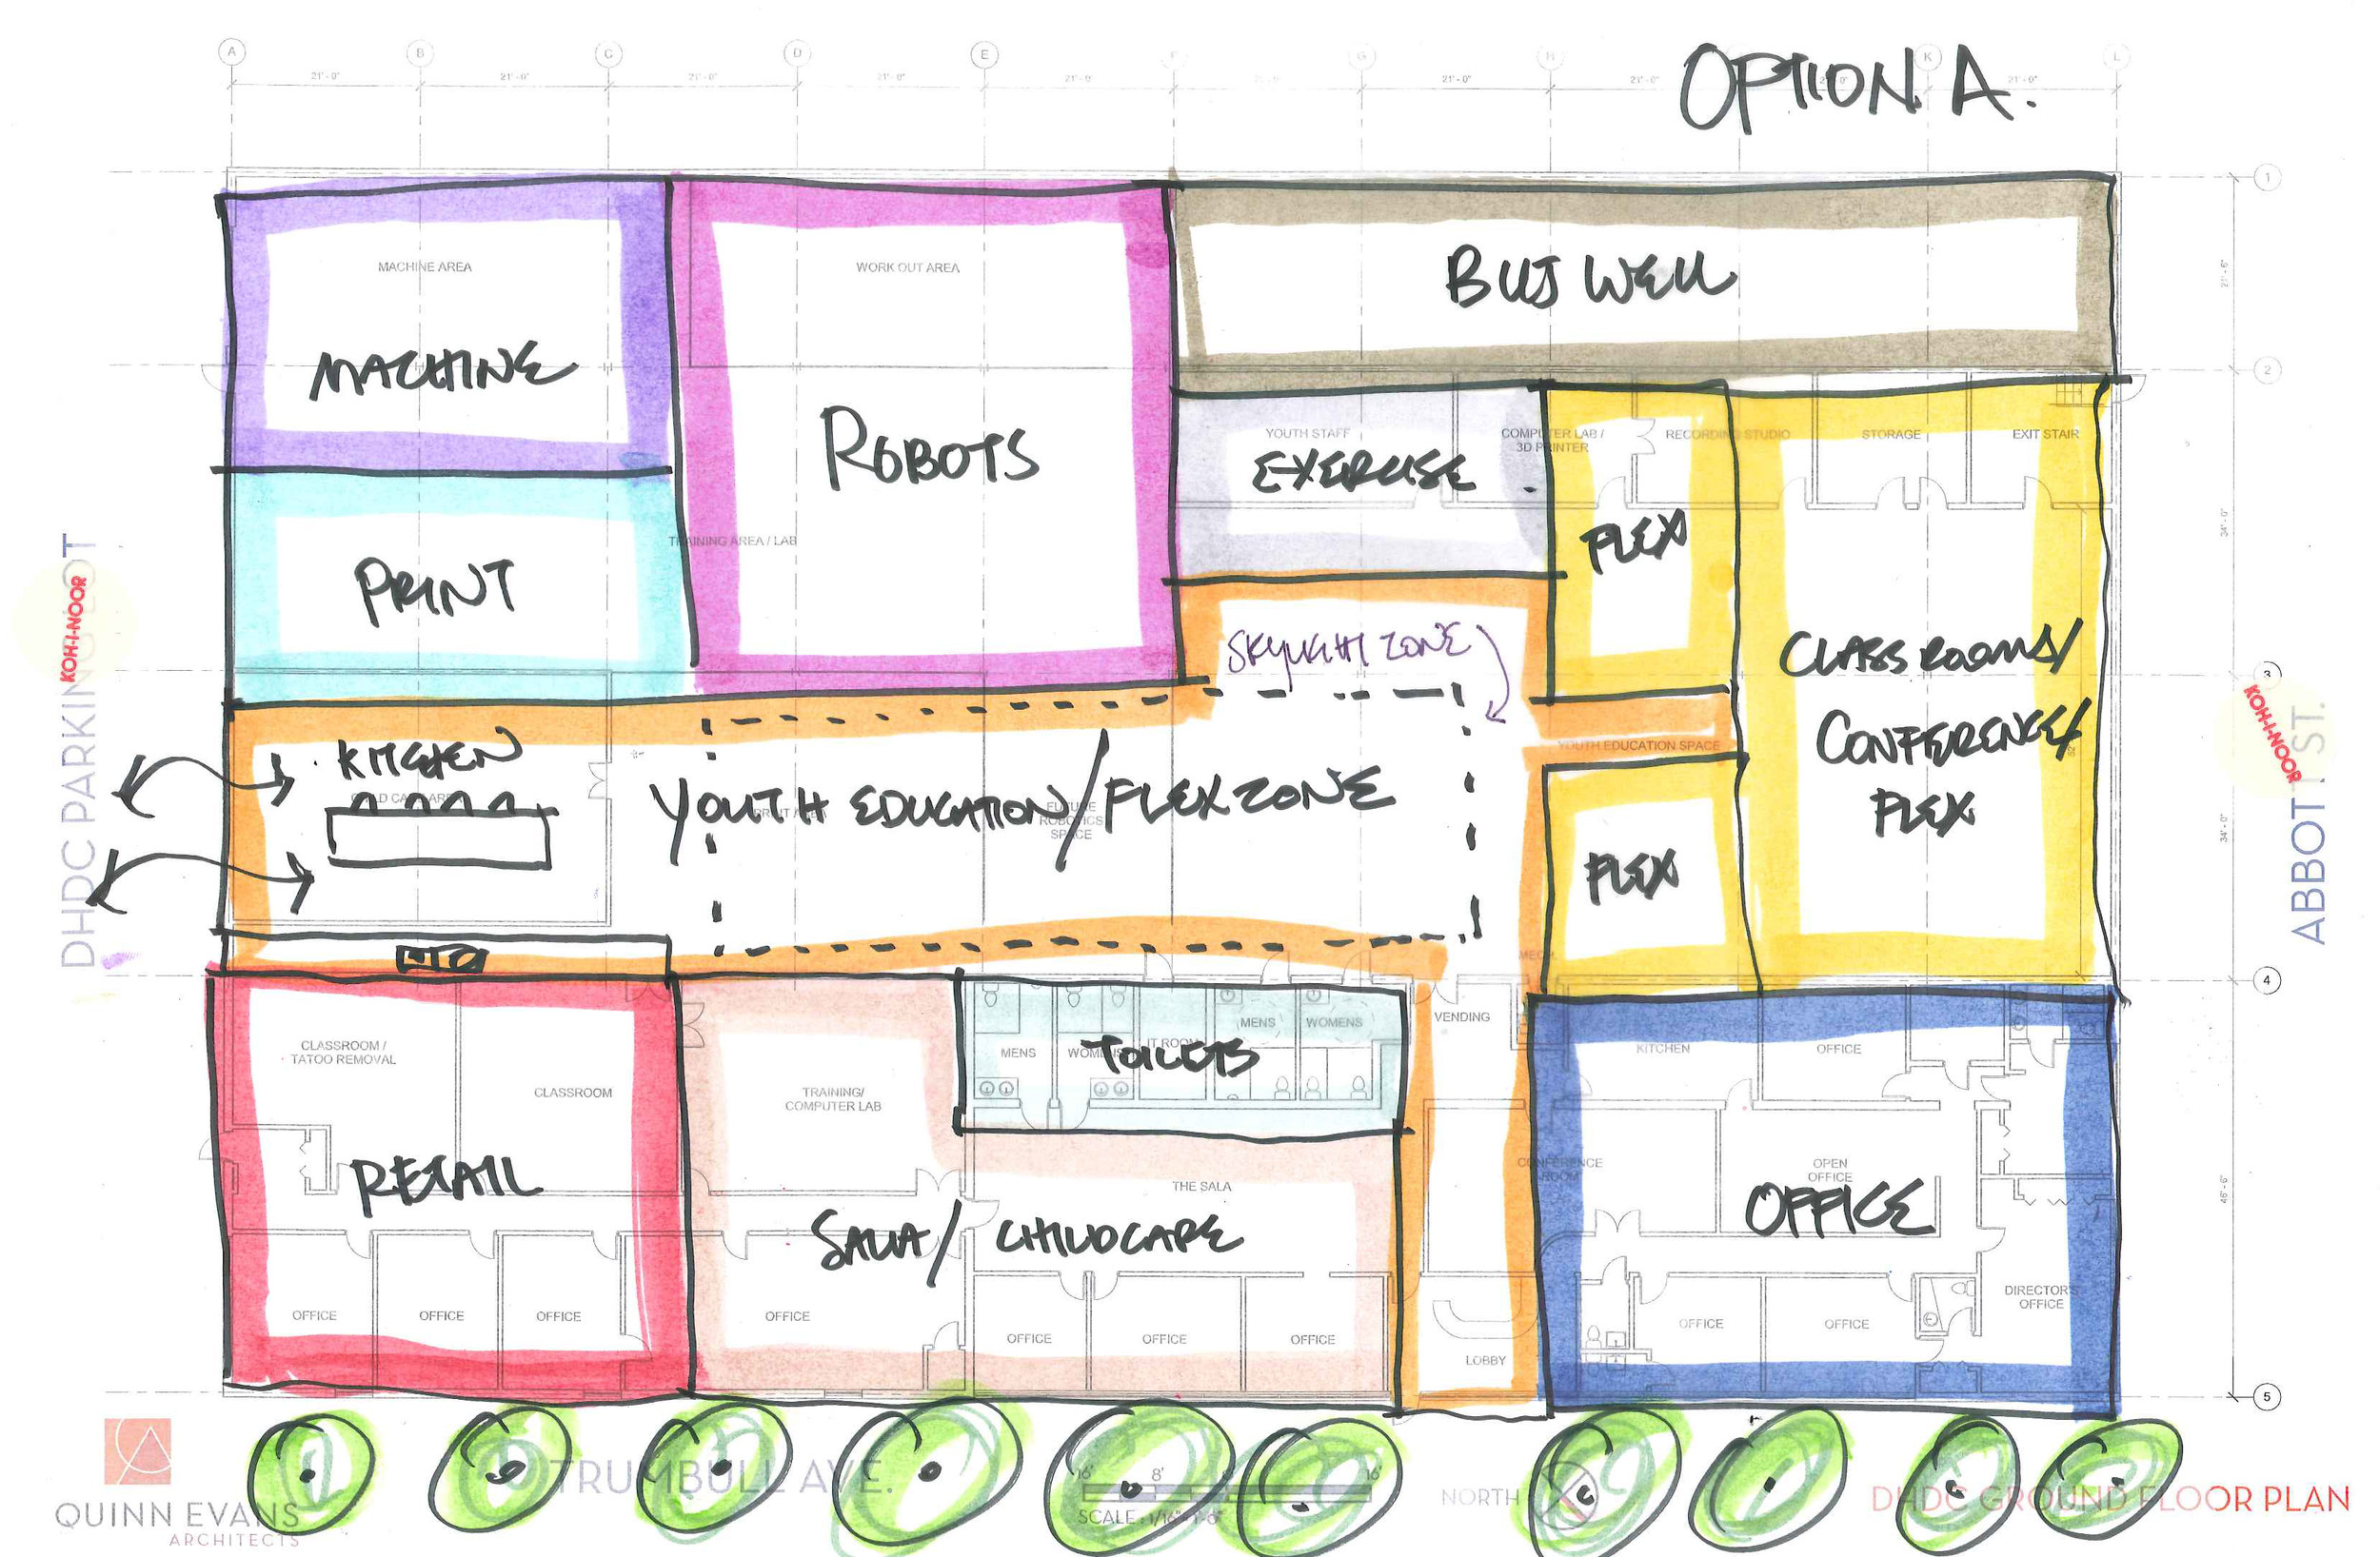 OPTION A.
A B C D E F G H K L
21'-0" 21'-0" 21'-0" 21'-0" 21'-0" 21'-0" 21'-0" 21'-0" 21'-0"
1
MACHINE AREA
WORK OUT AREA
BUS WELL
21'-6"
MACHINE
2
ROBOTS
YOUTH STAFF
COMPUTER LAB /
3D PRINTER
RECORDING STUDIO
STORAGE
EXIT STAIR
EXERCISE
FLEX
34'-0"
TRAINING AREA / LAB
PRINT
SKYLIGHT ZONE
CLASSROOMS/
CONFERENCE/
FLEX
3
KOH-I-NOOR
DHDC PARKING LOT
KOH-I-NOOR
ABBOTT ST.
YOUTH EDUCATION SPACE
KITCHEN
CHILD CARE AREA
YOUTH EDUCATION/FLEX ZONE
FUTURE
ROBOTICS
SPACE
34'-0"
FLEX
MECH.
4
CLASSROOM /
TATOO REMOVAL
CLASSROOM
TRAINING/
COMPUTER LAB
MENS
WOMENS
IT ROOM
MENS
WOMENS
TOILETS
VENDING
KITCHEN
OFFICE
RETAIL
THE SALA
SALA/ CHILDCARE
CONFERENCE
ROOM
OPEN
OFFICE
OFFICE
46'-6"
OFFICE
OFFICE
OFFICE
OFFICE
OFFICE
OFFICE
OFFICE
LOBBY
OFFICE
OFFICE
DIRECTOR'S
OFFICE
5
QUINN EVANS
ARCHITECTS
TRUMBULL AVE.
16' 8' 16'
SCALE : 1/16"=1'-0"
NORTH
DHDC GROUND FLOOR PLAN